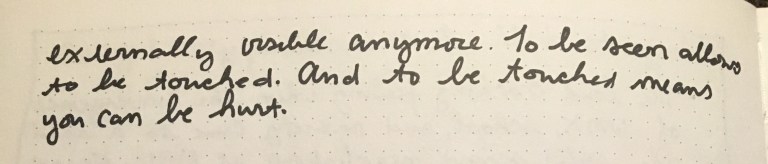 externally visible anymore. To be seen allows
to be touched. And to be touched means
you can be hurt.